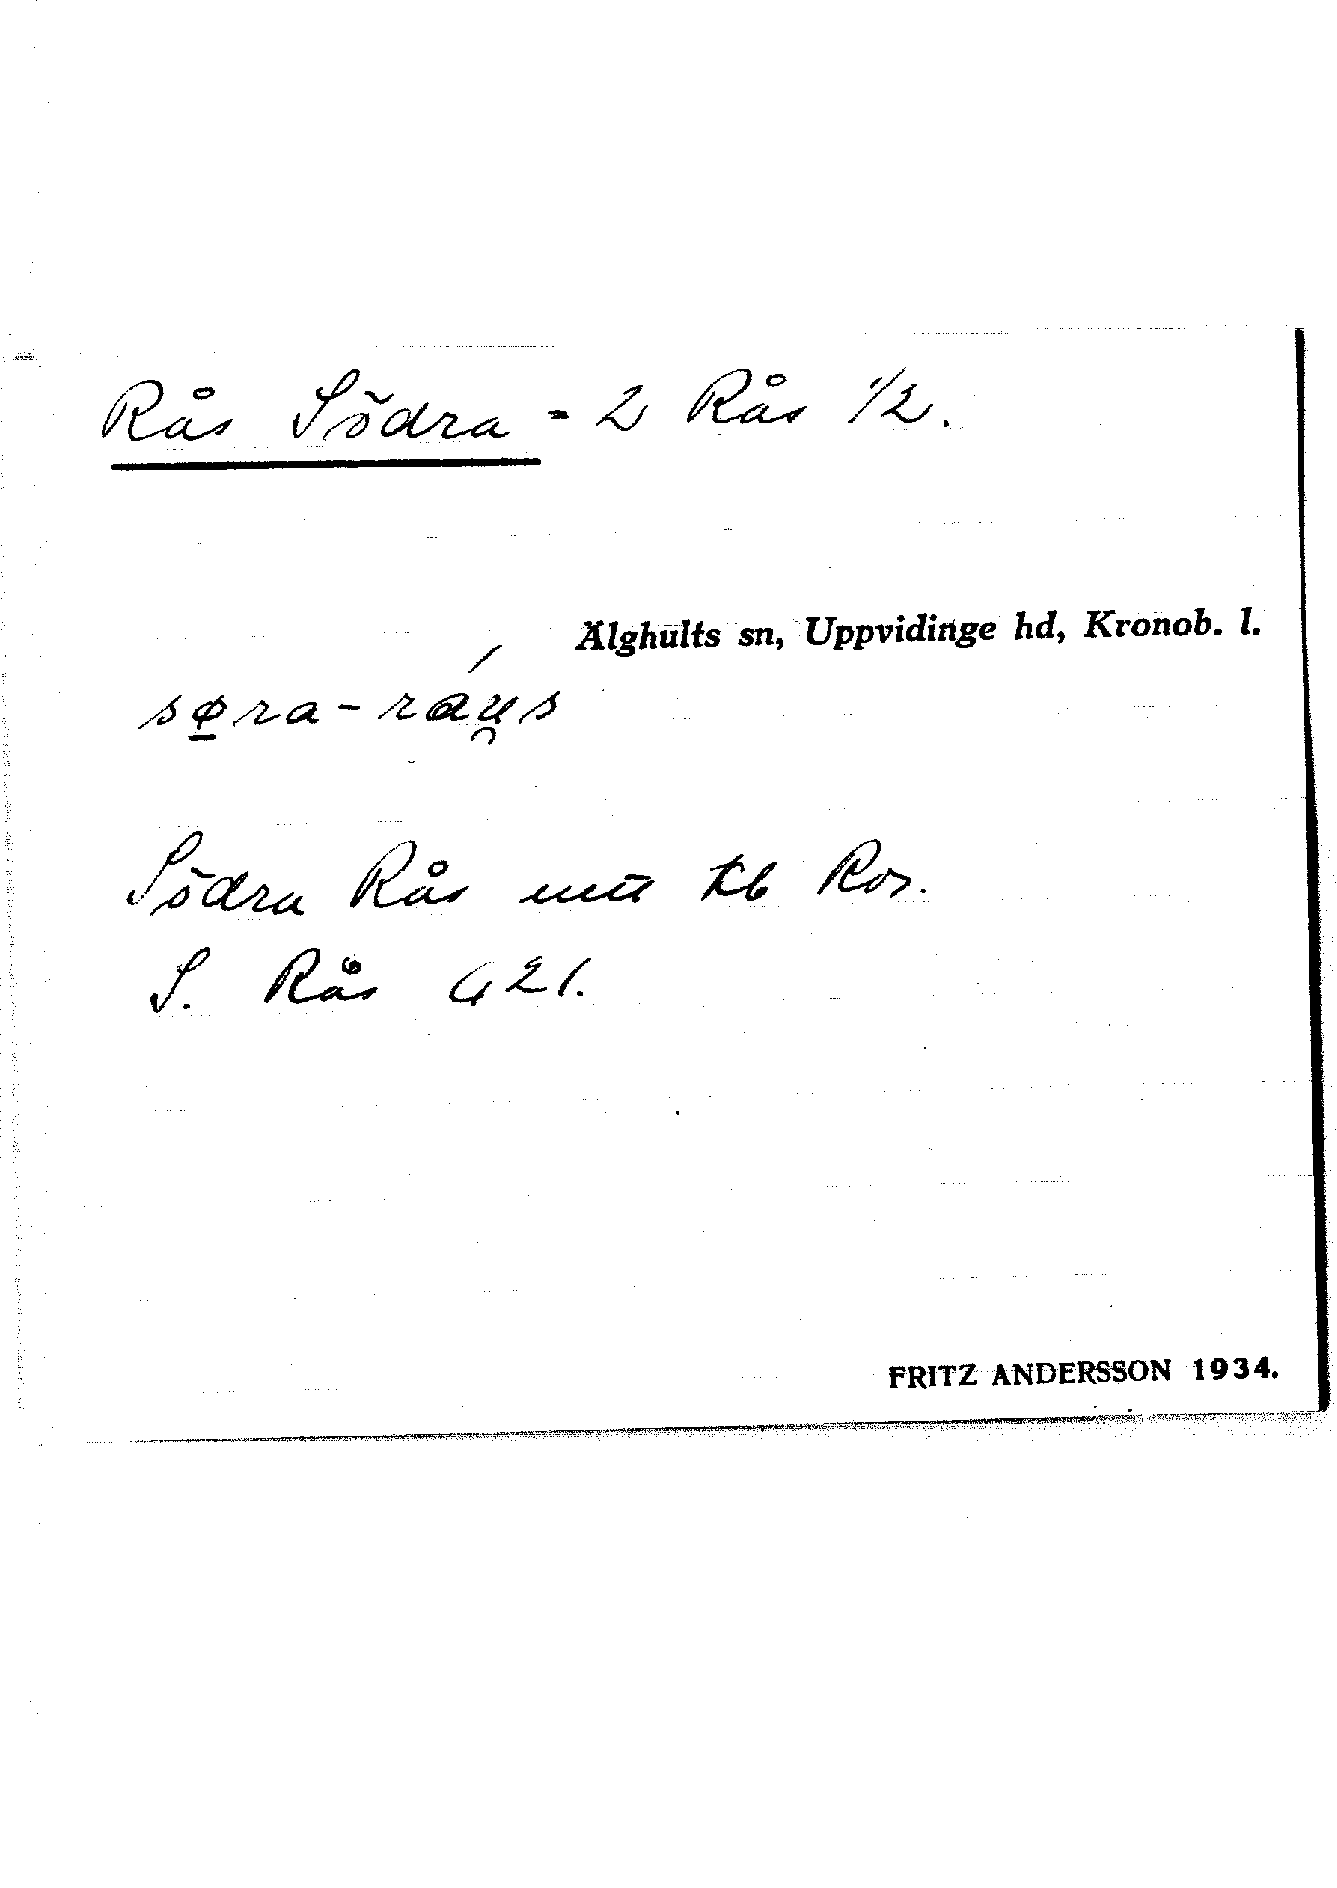 Rås Södra - 2 Rås 1/2.
Älghults sn, Uppvidinge hd, Kronob. l.
søra-ráu̯s
Södra Rås Kb Ros.
S. Rås G 21.
FRITZ ANDERSSON 1934.